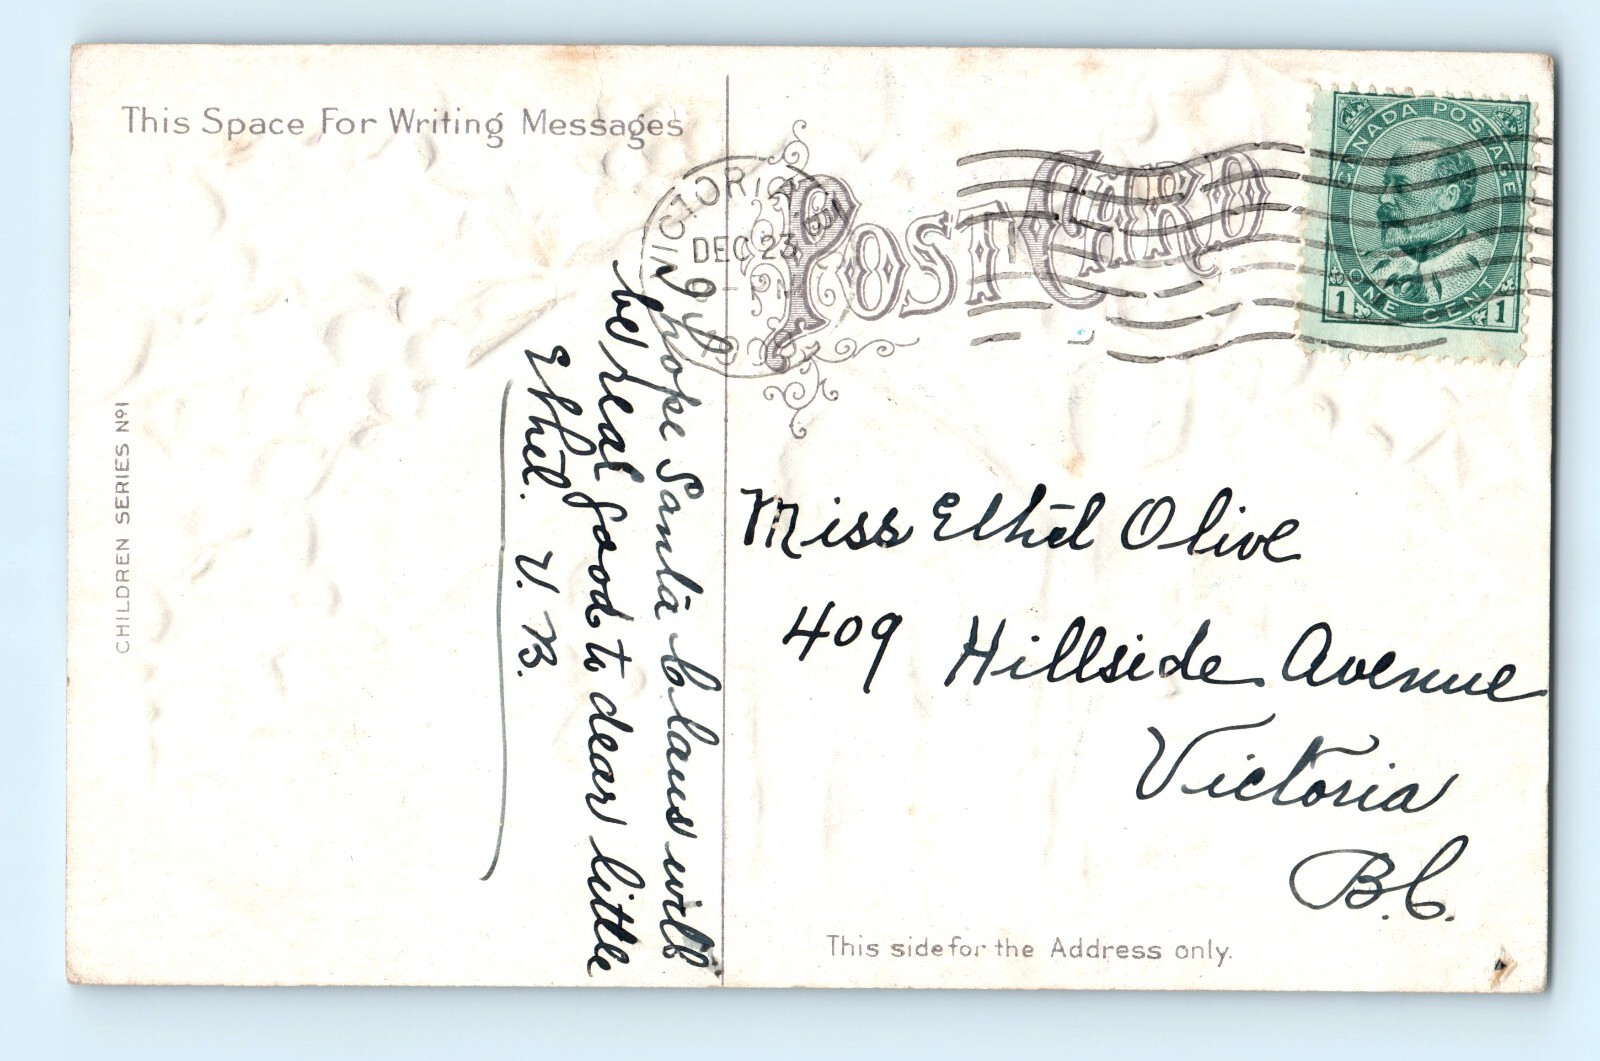 This Space For Writing Messages
POST CARD
VICTORIA
DEC 23
CANADA POSTAGE
ONE CENT
1 1
I hope Santa Claus will
be real good to dear little
Ethel. V. B.
Miss Ethel Olive
409 Hillside Avenue
Victoria
B.C.
CHILDREN SERIES Nº1
This side for the Address only.